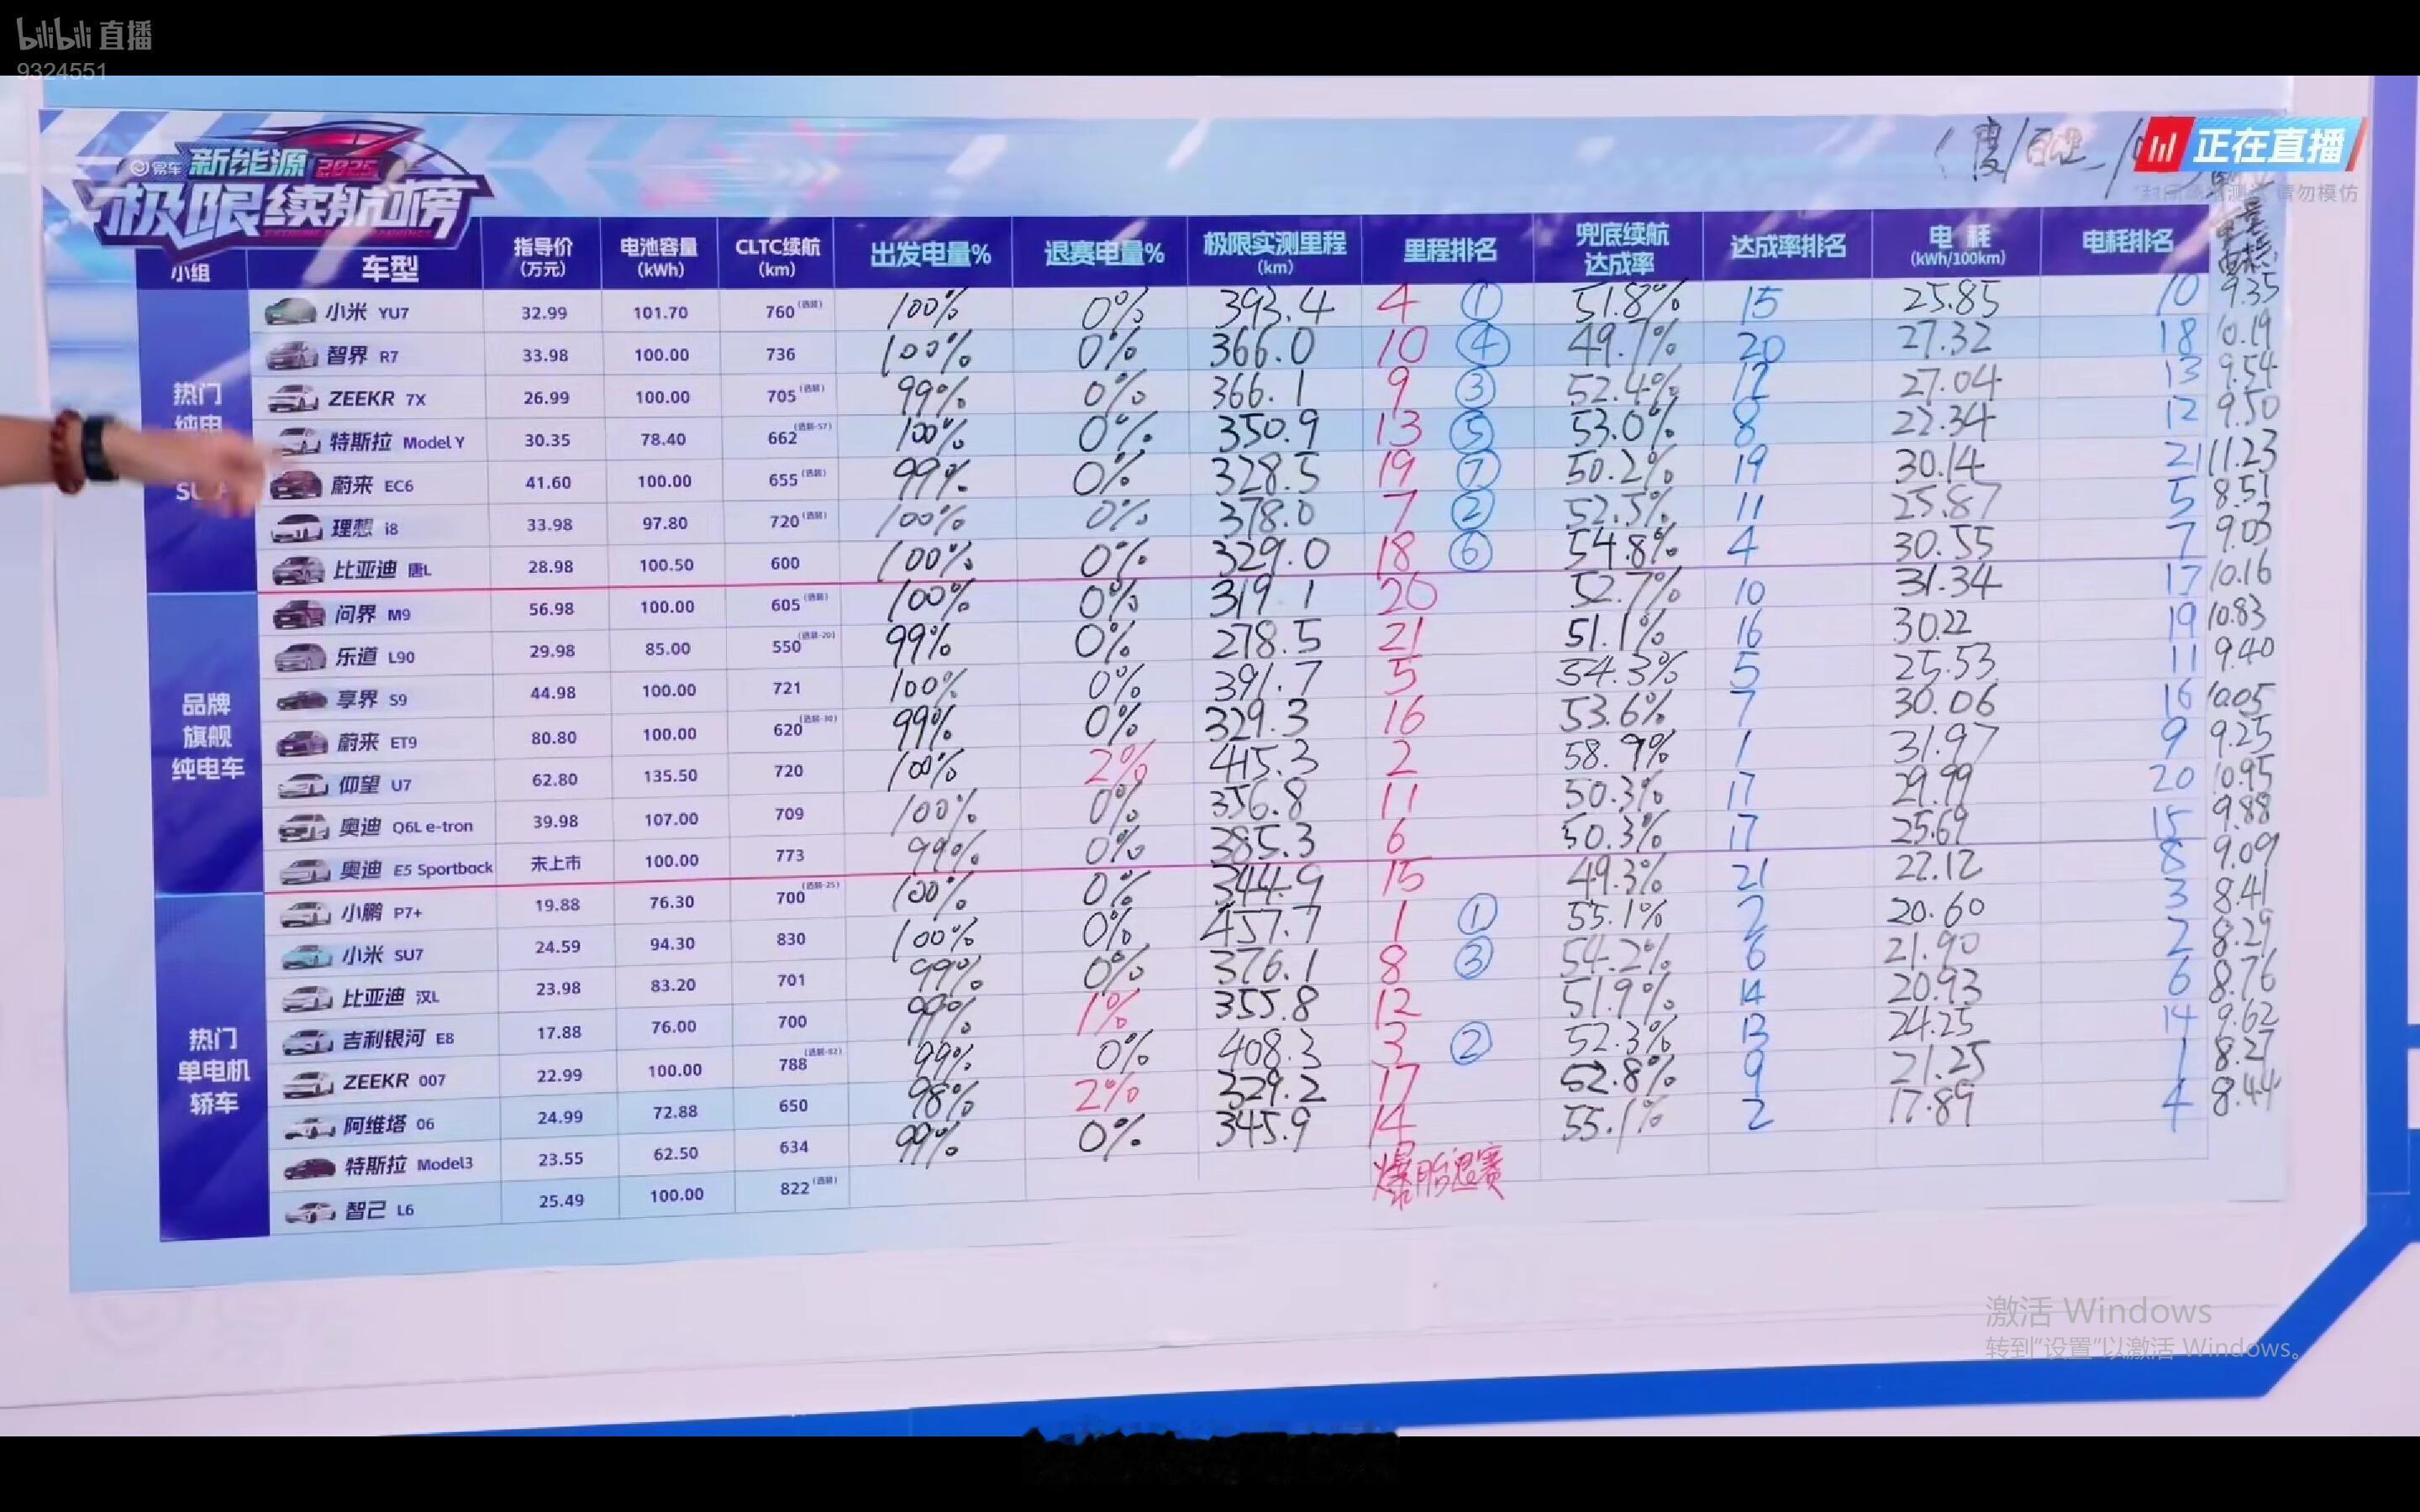 bilibili 直播
9324551
正在直播
请勿模仿
易车 新能源 2025
极限续航榜
小组 车型 指导价(万元) 电池容量(kWh) CLTC续航(km) 出发电量% 退赛电量% 极限实测里程(km) 里程排名 兜底续航达成率 达成率排名 电 耗(kWh/100km) 电耗排名
热门
纯电
小米 YU7 32.99 101.70 760(选装) 100% 0% 393.4 4 ① 51.8% 15 25.85 10 9.35
智界 R7 33.98 100.00 736 100% 0% 366.0 10 ④ 49.7% 20 27.32 18 10.19
ZEEKR 7X 26.99 100.00 705(选装) 99% 0% 366.1 9 ③ 52.4% 12 27.04 13 9.54
特斯拉 Model Y 30.35 78.40 662(选装-57) 100% 0% 350.9 13 ⑤ 53.0% 8 22.34 12 9.50
蔚来 EC6 41.60 100.00 655(选装) 99% 0% 328.5 19 ⑦ 50.2% 19 30.14 21 11.23
理想 i8 33.98 97.80 720(选装) 100% 0% 378.0 7 ② 52.5% 11 25.87 5 8.51
比亚迪 唐L 28.98 100.50 600 100% 0% 329.0 18 ⑥ 54.8% 4 30.55 7 9.03
品牌
旗舰
纯电车
问界 M9 56.98 100.00 605(选装) 100% 0% 319.1 20 52.7% 10 31.34 17 10.16
乐道 L90 29.98 85.00 550(选装-20) 99% 0% 278.5 21 51.1% 16 30.22 19 10.83
享界 S9 44.98 100.00 721 100% 0% 391.7 5 54.3% 5 25.53 11 9.40
蔚来 ET9 80.80 100.00 620(选装-30) 99% 0% 329.3 16 53.6% 7 30.06 16 10.05
仰望 U7 62.80 135.50 720 100% 2% 415.3 2 58.9% 1 31.97 9 9.25
奥迪 Q6L e-tron 39.98 107.00 709 100% 0% 356.8 11 50.3% 17 29.99 20 10.95
奥迪 E5 Sportback 未上市 100.00 773 99% 0% 385.3 6 50.3% 17 25.69 15 9.88
热门
单电机
轿车
小鹏 P7+ 19.88 76.30 700(选装-25) 100% 0% 344.9 15 49.3% 21 22.12 8 9.09
小米 SU7 24.59 94.30 830 100% 0% 457.7 1 ① 55.1% 2 20.60 3 8.41
比亚迪 汉L 23.98 83.20 701 99% 0% 376.1 8 ③ 54.2% 6 21.90 2 8.29
吉利银河 E8 17.88 76.00 700 99% 1% 355.8 12 51.9% 14 20.93 6 8.76
ZEEKR 007 22.99 100.00 788(选装-32) 99% 0% 408.3 3 ② 52.3% 13 24.25 14 9.62
阿维塔 06 24.99 72.88 650 98% 2% 329.2 17 52.8% 9 21.25 1 8.27
特斯拉 Model3 23.55 62.50 634 99% 0% 345.9 14 55.1% 2 17.89 4 8.44
智己 L6 25.49 100.00 822(选装) 爆胎退赛
激活 Windows
转到"设置"以激活 Windows。